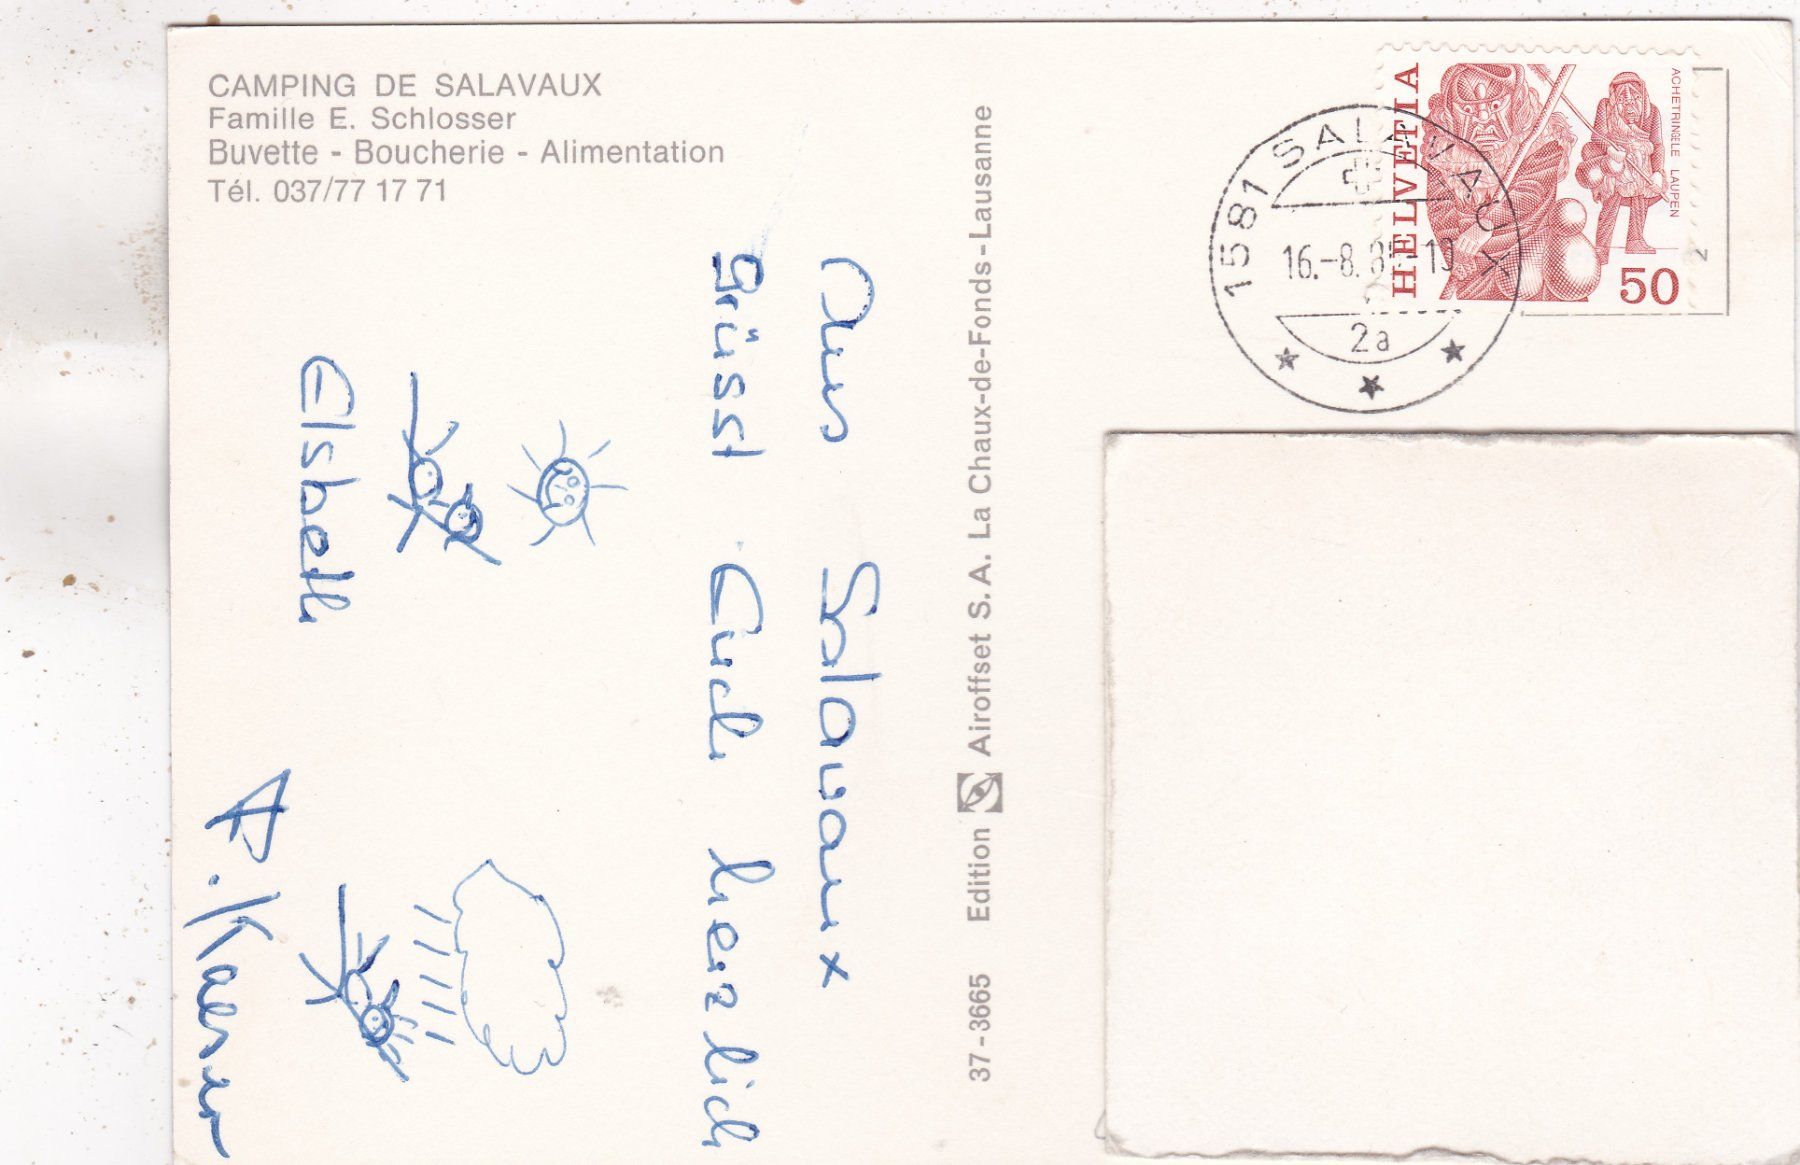 CAMPING DE SALAVAUX
Famille E. Schlosser
Buvette - Boucherie - Alimentation
Tél. 037/77 17 71
Aus Salavaux
grüsst Euch herzlich
Elsbeth
37-3665 Edition Airoffset S. A. La Chaux-de-Fonds-Lausanne
HELVETIA
ACHETRINGELE LAUPEN
50
1581 SALAVAUX
16.-8.8 -19
2a
2